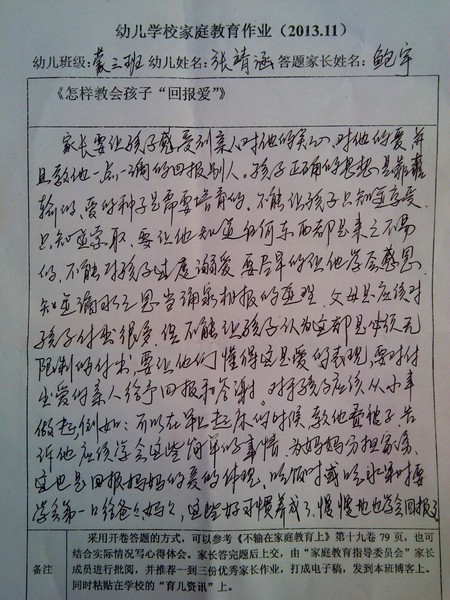 幼儿学校家庭教育作业（2013.11）
幼儿班级:蒙三班 幼儿姓名:张靖涵 答题家长姓名:鲍宇
《怎样教会孩子“回报爱”》
家长要让孩子感受到亲人对他的关心,对他的爱,并
且教他一点一滴的回报别人。孩子正确的思想是靠灌
输的,爱的种子是需要培育的。不能让孩子只知道享受
只知道索取,要让他知道任何东西都是来之不易
的,不能对孩子过度溺爱 要尽早的让他学会感恩
知道滴水之恩当涌泉相报的道理,父母是应该对
孩子付出很多,但不能让孩子认为这都是体统无
限制的付出,要让他们懂得这是爱的表现,要对付
出爱的亲人给予回报和答谢。对于孩子应该从小事
做起,例如:可以在早上起床的时候,教他叠被子,告
诉他应该学会这些简单的事情,为妈妈分担家务,
这也是回报妈妈的爱的体现,吃饭时或吃水果时要
学会第一口给爸爸妈妈,这些好习惯养成了,慢慢地也学会回报了
备注
采用开卷答题的方式，可以参考《不输在家庭教育上》第十九卷79页，也可
结合实际情况写心得体会。家长答完题后上交，由“家庭教育指导委员会”家长
成员进行批阅，并推荐一到三份优秀家长作业，打成电子稿，发到本班博客上。
同时粘贴在学校的“育儿资讯”上。